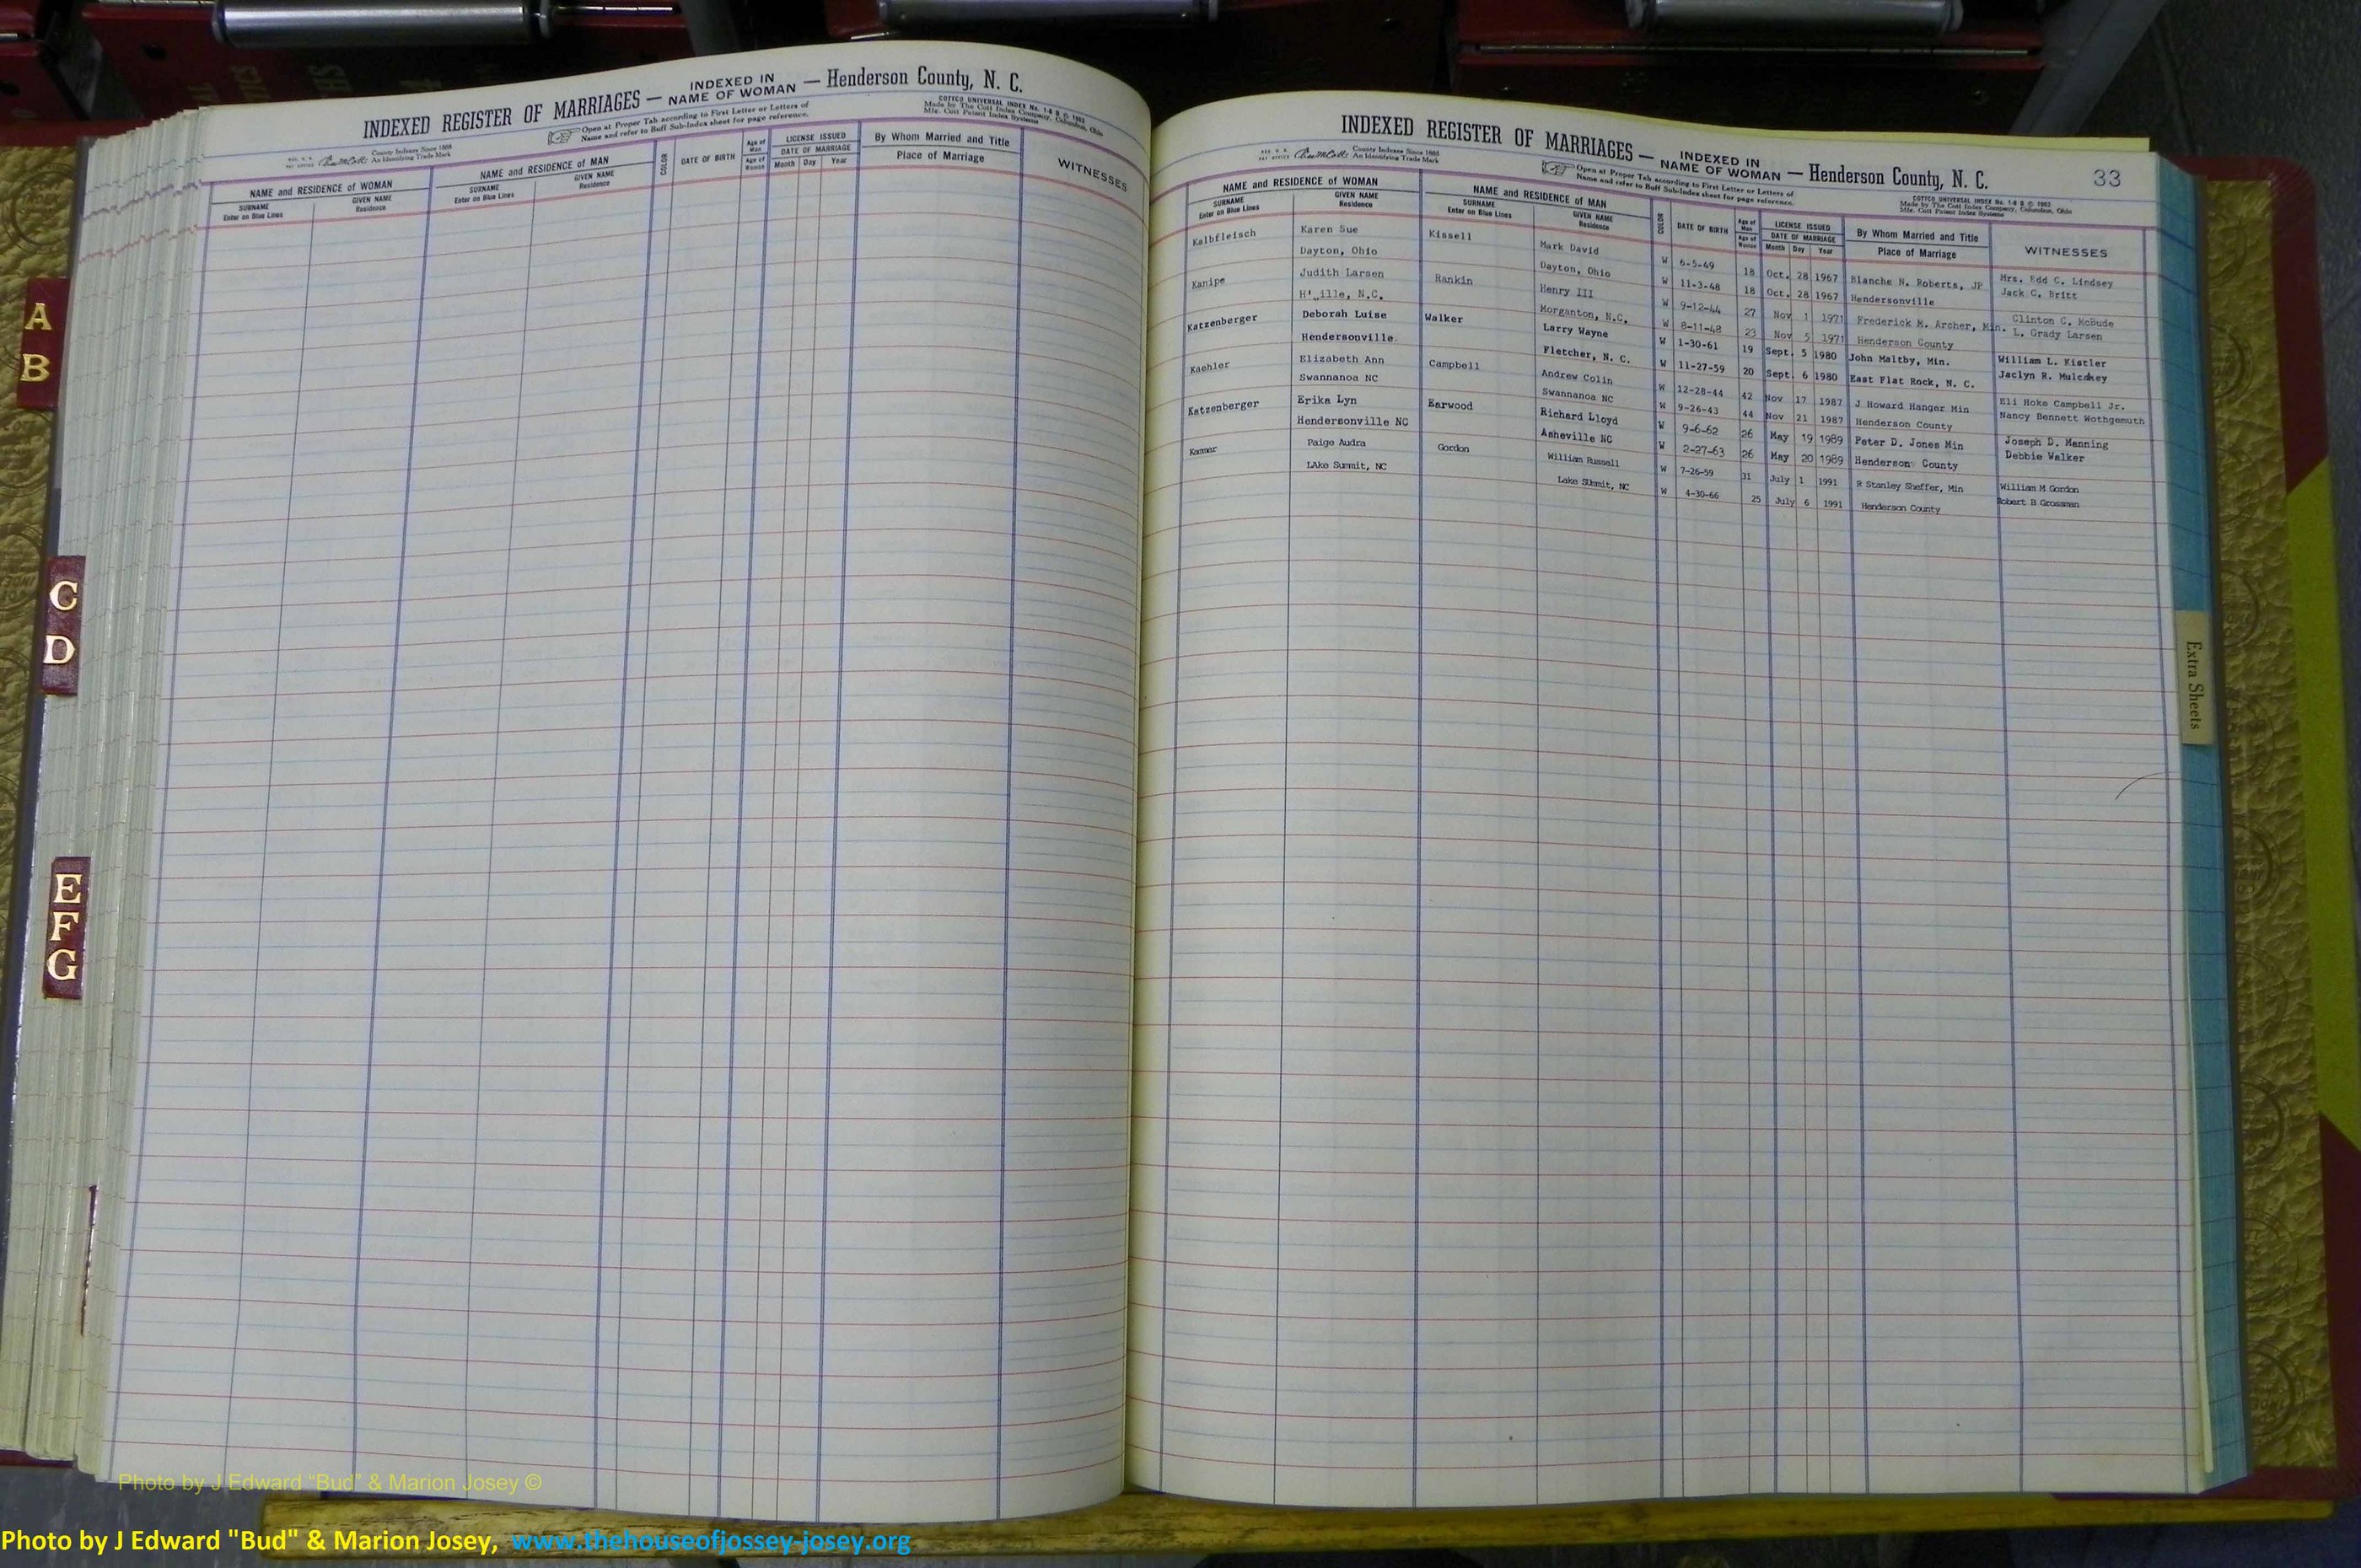 INDEXED REGISTER OF MARRIAGES — INDEXED IN NAME OF WOMAN — Henderson County, N. C.
County Indexes Since 1888
An Identifying Trade Mark
Open at Proper Tab according to First Letter or Letters of
Name and refer to Buff Sub-Index sheet for page reference.
COTTCO UNIVERSAL INDEX No. 1-8 B © 1963
Made by The Cott Index Company, Columbus, Ohio
Mfg. Cott Patent Index Systems
NAME and RESIDENCE OF WOMAN
SURNAME
Enter on Blue Lines
GIVEN NAME
Residence
NAME and RESIDENCE OF MAN
SURNAME
Enter on Blue Lines
GIVEN NAME
Residence
COLOR
DATE OF BIRTH
Age of Man
Age of Woman
LICENSE ISSUED
DATE OF MARRIAGE
Month Day Year
By Whom Married and Title
Place of Marriage
WITNESSES
A
B
C
D
E
F
G
INDEXED REGISTER OF MARRIAGES — INDEXED IN NAME OF WOMAN — Henderson County, N. C. 33
County Indexes Since 1888
An Identifying Trade Mark
Open at Proper Tab according to First Letter or Letters of
Name and refer to Buff Sub-Index sheet for page reference.
COTTCO UNIVERSAL INDEX No. 1-8 B © 1963
Made by The Cott Index Company, Columbus, Ohio
Mfg. Cott Patent Index Systems
NAME and RESIDENCE OF WOMAN
SURNAME
Enter on Blue Lines
GIVEN NAME
Residence
NAME and RESIDENCE OF MAN
SURNAME
Enter on Blue Lines
GIVEN NAME
Residence
COLOR
DATE OF BIRTH
Age of Man
Age of Woman
LICENSE ISSUED
DATE OF MARRIAGE
Month Day Year
By Whom Married and Title
Place of Marriage
WITNESSES
Kalbfleisch Karen Sue Kissell Mark David W 6-5-49 18 Oct. 28 1967 Blanche N. Roberts, JP Mrs. Edd C. Lindsey
Dayton, Ohio Dayton, Ohio W 11-3-48 18 Oct. 28 1967 Hendersonville Jack C. Britt
Kanipe Judith Larsen Rankin Henry III W 9-12-44 27 Nov 1 1971 Frederick M. Archer, Min. Clinton C. McBude
H'ville, N.C. Morganton, N.C. W 8-11-48 23 Nov 5 1971 Henderson County L. Grady Larsen
Katzenberger Deborah Luise Walker Larry Wayne W 1-30-61 19 Sept. 5 1980 John Maltby, Min. William L. Kistler
Hendersonville Fletcher, N. C. W 11-27-59 20 Sept. 6 1980 East Flat Rock, N. C. Jaclyn R. Mulcakey
Kaehler Elizabeth Ann Campbell Andrew Colin W 12-28-44 42 Nov 17 1987 J Howard Hanger Min Eli Hoke Campbell Jr.
Swannanoa NC Swannanoa NC W 9-26-43 44 Nov 21 1987 Henderson County Nancy Bennett Wothgemuth
Katzenberger Erika Lyn Earwood Richard Lloyd W 9-6-62 26 May 19 1989 Peter D. Jones Min Joseph D. Manning
Hendersonville NC Asheville NC W 2-27-63 26 May 20 1989 Henderson County Debbie Walker
Kammer Paige Audra Gordon William Russell W 7-26-59 31 July 1 1991 R Stanley Sheffer, Min William M Gordon
LAke Summit, NC Lake SUmmit, NC W 4-30-66 25 July 6 1991 Henderson County Robert B Grossman
Extra Sheets
Photo by J Edward “Bud” & Marion Josey ©
Photo by J Edward "Bud" & Marion Josey, www.thehouseofjossey-josey.org